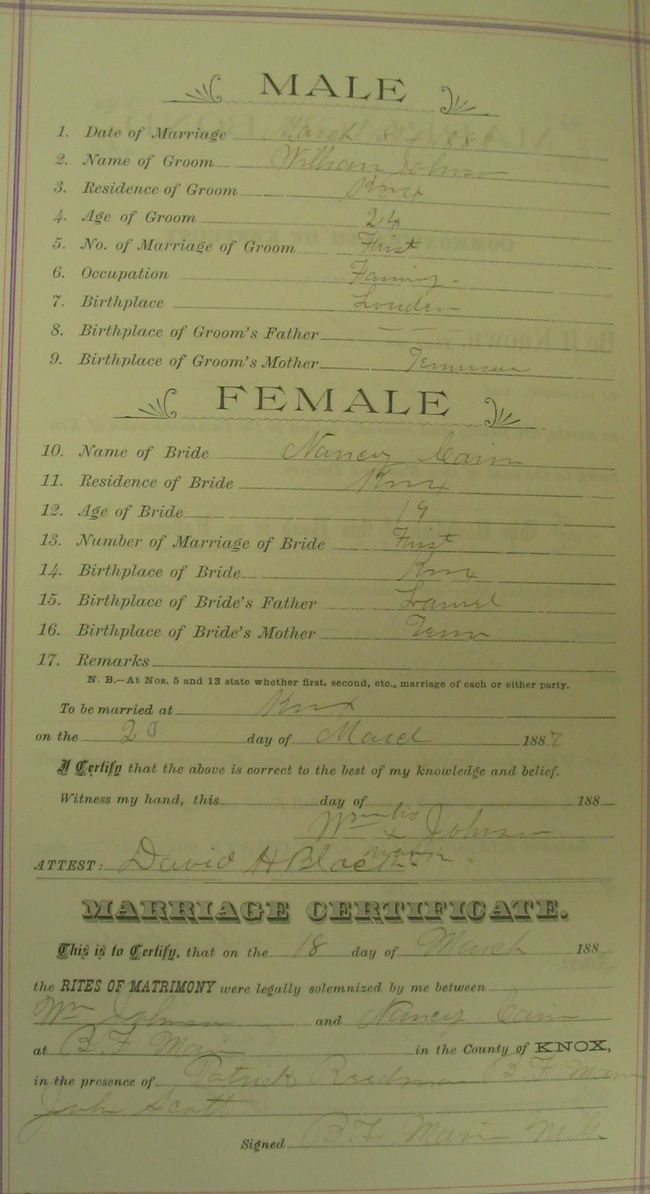 MALE
1. Date of Marriage March 8 188
2. Name of Groom William Johnson
3. Residence of Groom Knox
4. Age of Groom 24
5. No. of Marriage of Groom First
6. Occupation Faming.
7. Birthplace Louden
8. Birthplace of Groom's Father — —
9. Birthplace of Groom's Mother Tennessee
FEMALE
10. Name of Bride Nancy Cain
11. Residence of Bride Knox
12. Age of Bride 19
13. Number of Marriage of Bride First
14. Birthplace of Bride Knox
15. Birthplace of Bride's Father Laurel
16. Birthplace of Bride's Mother Tenn
17. Remarks
N. B.—At Nos. 5 and 13 state whether first, second, etc., marriage of each or either party.
To be married at Knox
on the day of March 1887
I Certify that the above is correct to the best of my knowledge and belief.
Witness my hand, this day of 188
Wm his x Johnson
mark
ATTEST: David H Black
MARRIAGE CERTIFICATE.
This is to Certify, that on the 18 day of March 188
the RITES OF MATRIMONY were legally solemnized by me between
Wm Johnson and Nancy Cain
at B. F. in the County of KNOX,
in the presence of Patrick B F
John Scott
Signed B. F.